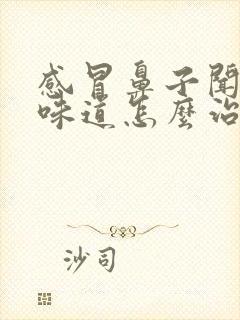 感冒鼻子聞
味道怎麼治
沙司